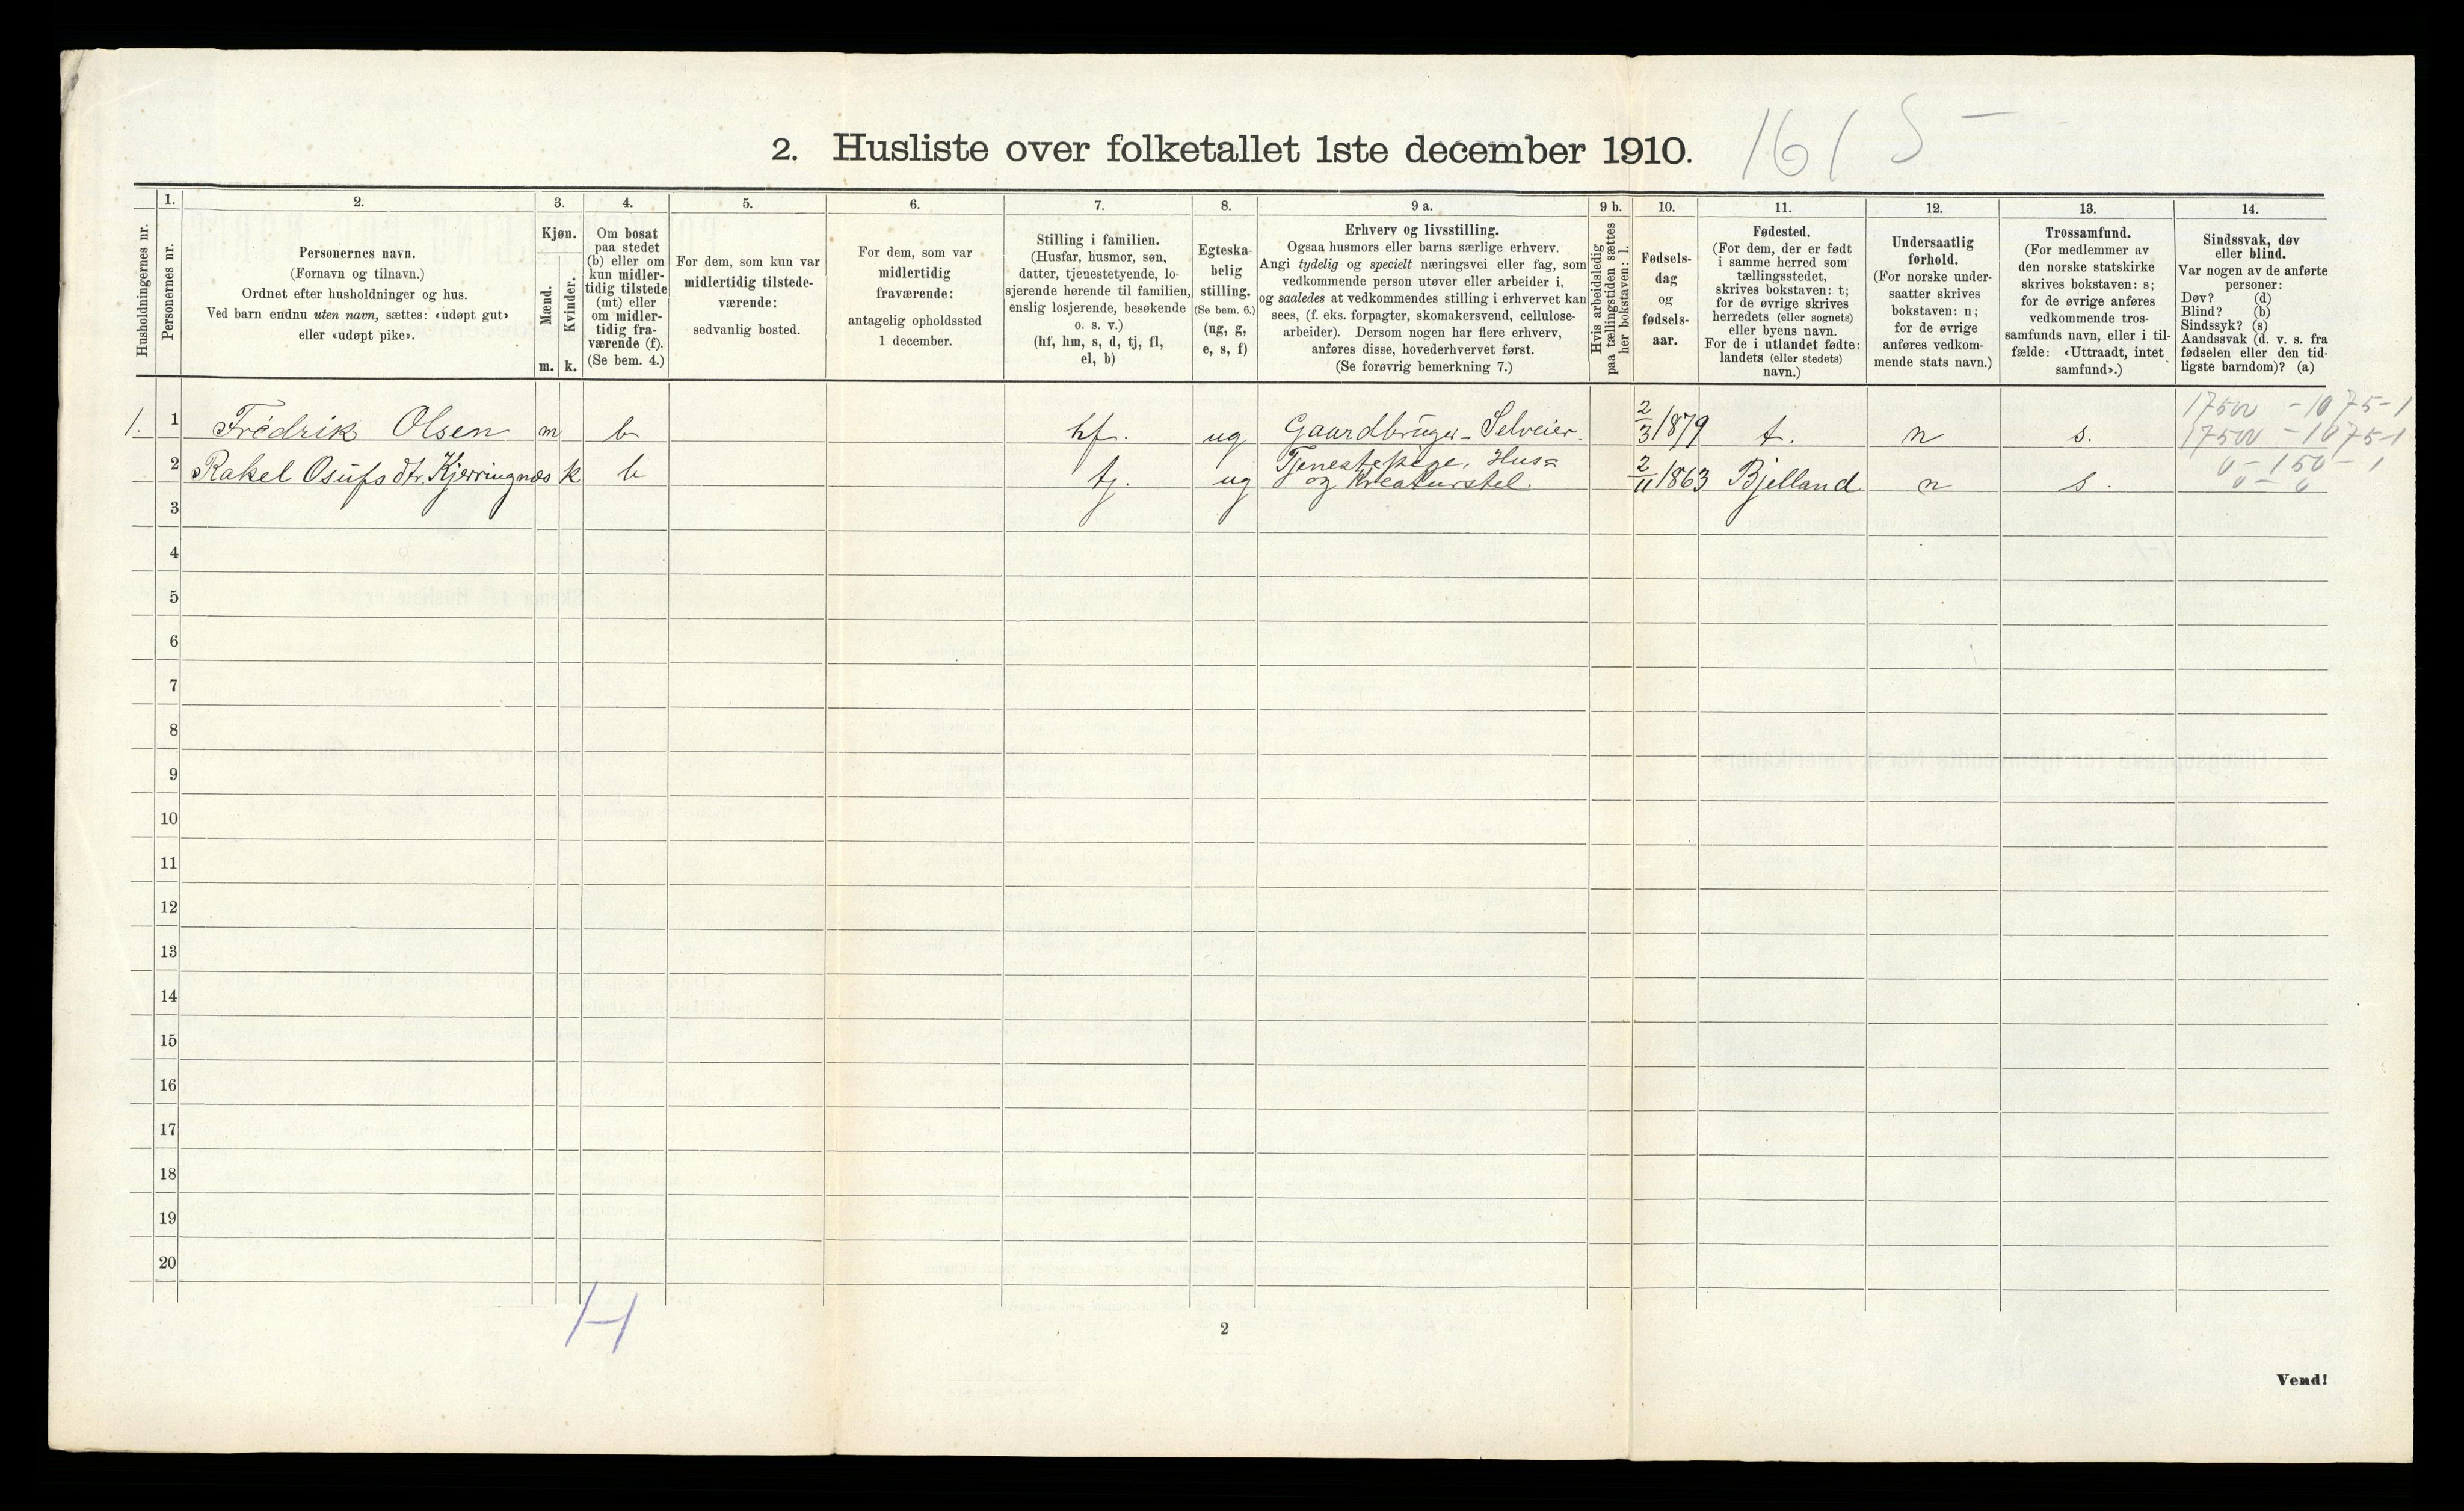 2. Husliste over folketallet 1ste december 1910.
Husholdningernes nr.
1.
Personernes nr.
2.
Personernes navn.
(Fornavn og tilnavn.)
Ordnet efter husholdninger og hus.
Ved barn endnu uten navn, sættes: «udøpt gut»
eller «udøpt pike».
3.
Kjøn.
Mænd.
Kvinder.
m. k.
4.
Om bosat
paa stedet
(b) eller om
kun midler-
tidig tilstede
(mt) eller
om midler-
tidig fra-
værende (f).
(Se bem. 4.)
5.
For dem, som kun var
midlertidig tilstede-
værende:
sedvanlig bosted.
6.
For dem, som var
midlertidig
fraværende:
antagelig opholdssted
1 december.
7.
Stilling i familien.
(Husfar, husmor, søn,
datter, tjenestetyende, lo-
sjerende hørende til familien,
enslig losjerende, besøkende
o. s. v.)
(hf, hm, s, d, tj, fl,
el, b)
8.
Egteska-
belig
stilling.
(Se bem. 6.)
(ug, g,
e, s, f)
9 a.
Erhverv og livsstilling.
Ogsaa husmors eller barns særlige erhverv.
Angi tydelig og specielt næringsvei eller fag, som
vedkommende person utøver eller arbeider i,
og saaledes at vedkommendes stilling i erhvervet kan
sees, (f. eks. forpagter, skomakersvend, cellulose-
arbeider). Dersom nogen har flere erhverv,
anføres disse, hovederhvervet først.
(Se forøvrig bemerkning 7.)
9 b.
Hvis arbeidsledig
paa tællingstiden sættes
her bokstaven: l.
10.
Fødsels-
dag
og
fødsels-
aar.
11.
Fødested.
(For dem, der er født
i samme herred som
tællingsstedet,
skrives bokstaven: t;
for de øvrige skrives
herredets (eller sognets)
eller byens navn.
For de i utlandet fødte:
landets (eller stedets)
navn.)
12.
Undersaatlig
forhold.
(For norske under-
saatter skrives
bokstaven: n;
for de øvrige
anføres vedkom-
mende stats navn.)
13.
Trossamfund.
(For medlemmer av
den norske statskirke
skrives bokstaven: s;
for de øvrige anføres
vedkommende tros-
samfunds navn, eller i til-
fælde: «Uttraadt, intet
samfund».)
14.
Sindssvak, døv
eller blind.
Var nogen av de anførte
personer:
Døv? (d)
Blind? (b)
Sindssyk? (s)
Aandssvak (d. v. s. fra
fødselen eller den tid-
ligste barndom)? (a)
1. 1 Fredrik Olsen m b hf. ug Gaardbruger - Selveier. 2/3 1879 t. n s.
2 Rakel Osufs dtr. Kjerringnæs k b tj. ug Tjenestepige, Hus=
og Kreaturstel. 2/11 1863 Bjelland n s.
3
4
5
6
7
8
9
10
11
12
13
14
15
16
17
18
19
20
H
2
Vend!